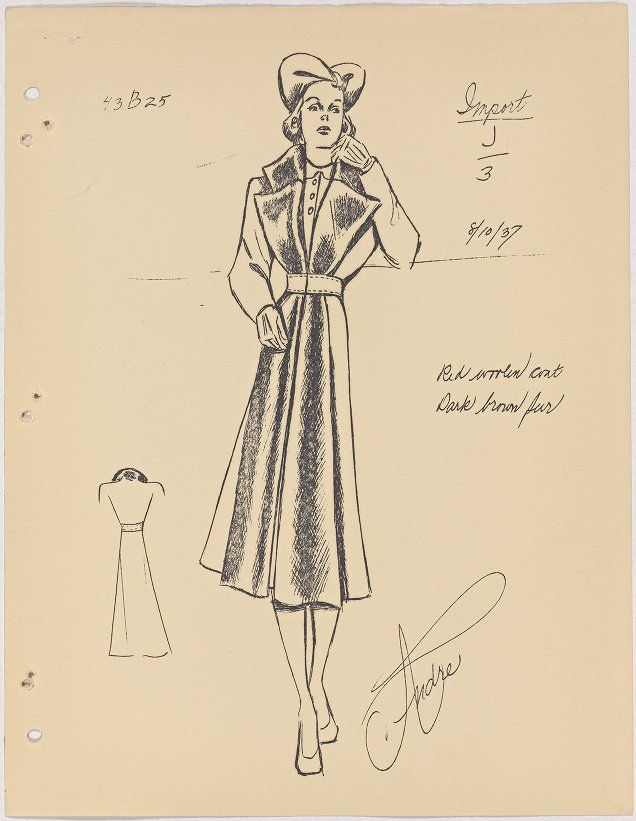 43B25
Import
J
3
8/10/37
Red woolen coat
Dark brown fur
Andre